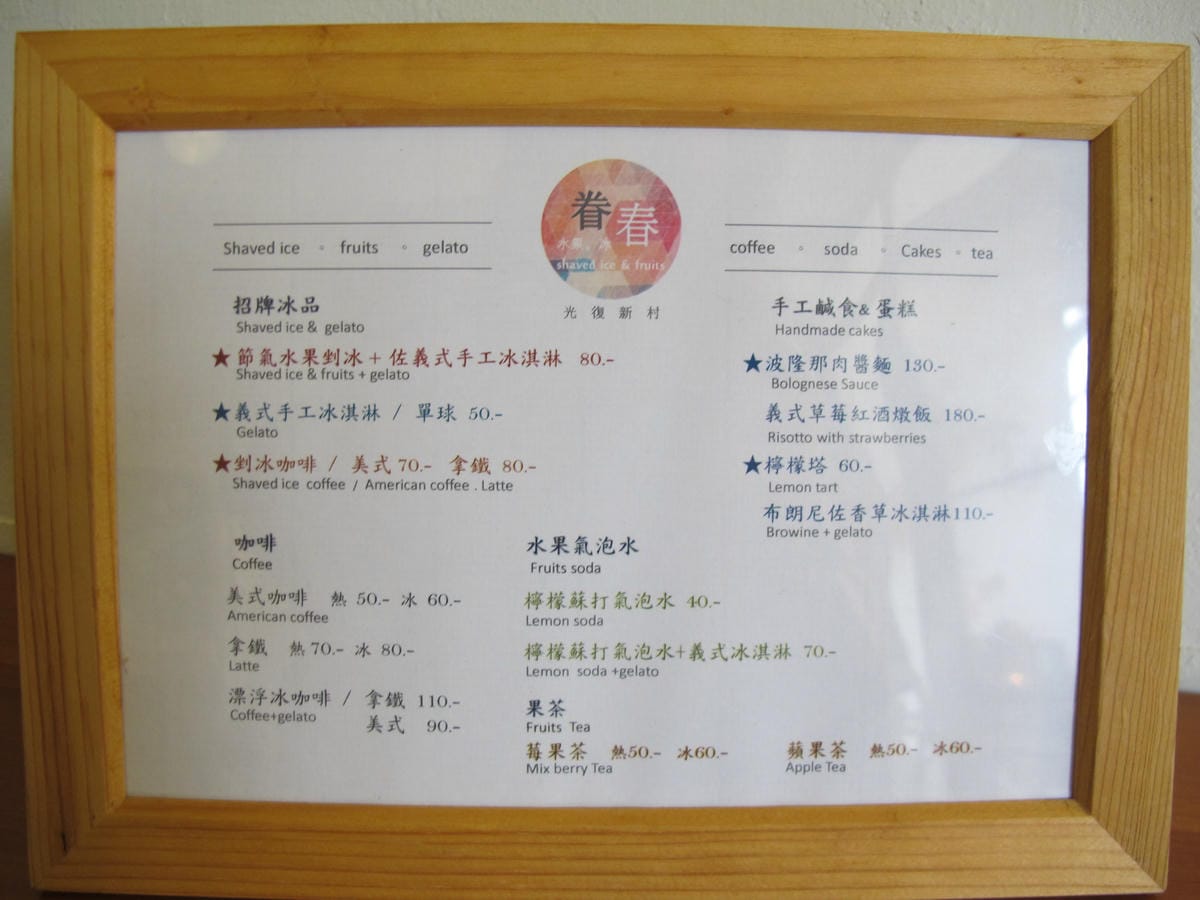 Shaved ice 。 fruits 。 gelato
眷春
水果。冰
shaved ice & fruits
光復新村
coffee 。 soda 。 Cakes 。 tea
招牌冰品
Shaved ice & gelato
★節氣水果剉冰+佐義式手工冰淇淋 80.-
Shaved ice & fruits + gelato
★義式手工冰淇淋 / 單球 50.-
Gelato
★剉冰咖啡 / 美式 70.- 拿鐵 80.-
Shaved ice coffee / American coffee . Latte
手工鹹食&蛋糕
Handmade cakes
★波隆那肉醬麵 130.-
Bolognese Sauce
義式草莓紅酒燉飯 180.-
Risotto with strawberries
★檸檬塔 60.-
Lemon tart
布朗尼佐香草冰淇淋110.-
Browine + gelato
咖啡
Coffee
美式咖啡 熱 50.- 冰 60.-
American coffee
拿鐵 熱 70.- 冰 80.-
Latte
漂浮冰咖啡 / 拿鐵 110.-
Coffee+gelato
美式 90.-
水果氣泡水
Fruits soda
檸檬蘇打氣泡水 40.-
Lemon soda
檸檬蘇打氣泡水+義式冰淇淋 70.-
Lemon soda +gelato
果茶
Fruits Tea
莓果茶 熱50.- 冰60.- 蘋果茶 熱50.- 冰60.-
Mix berry Tea Apple Tea